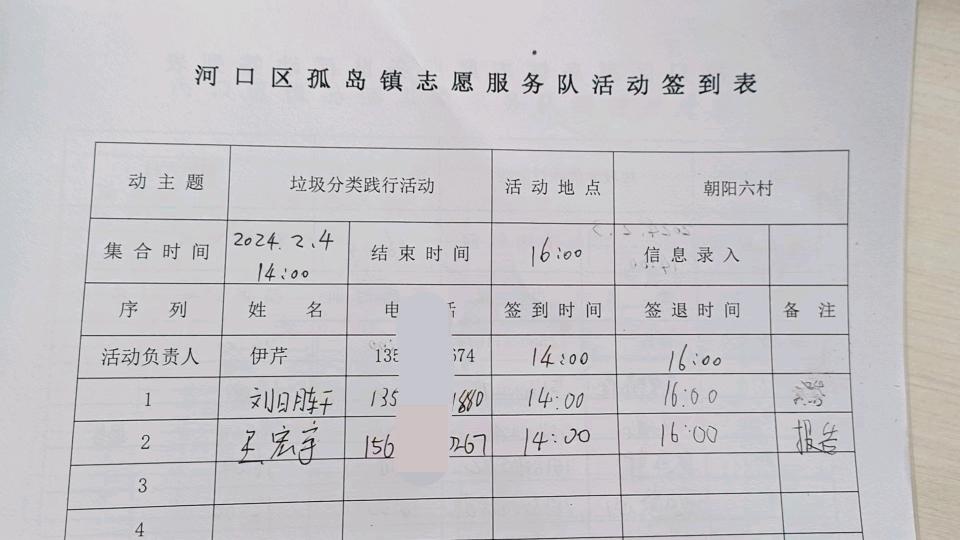 河口区孤岛镇志愿服务队活动签到表
动主题 垃圾分类践行活动 活动地点 朝阳六村
集合时间 2024.2.4 14:00 结束时间 16:00 信息录入
序列 姓名 电 话 签到时间 签退时间 备注
活动负责人 伊芹 135 674 14:00 16:00
1 刘日胜 135 1880 14:00 16:00
2 王宏宇 156 267 14:00 16:00 报告
3
4